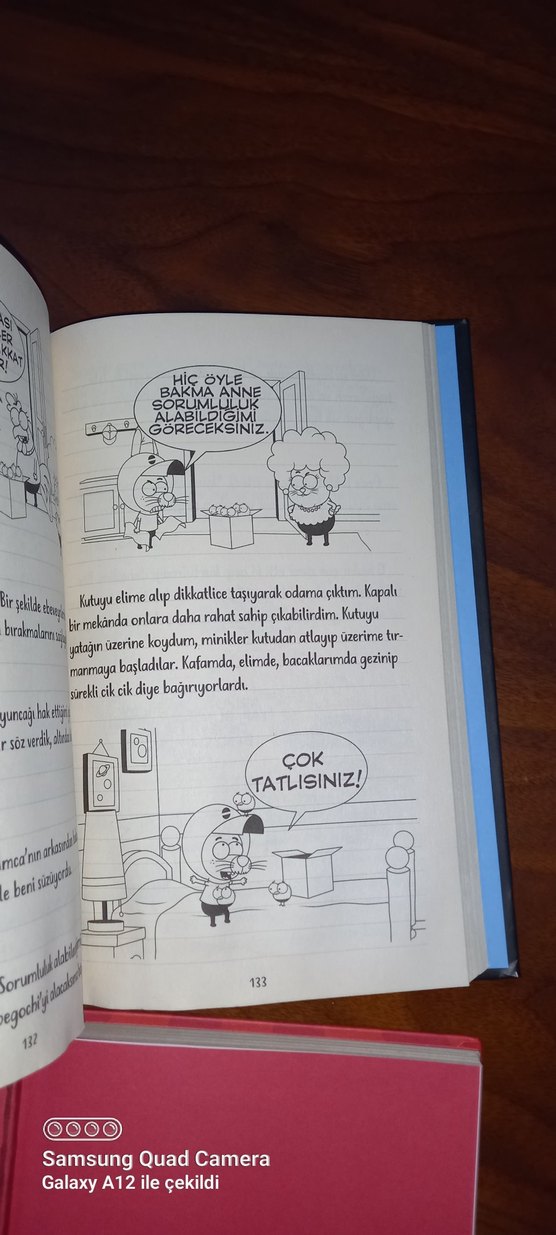 KKAT
Bir şekilde
bırakmalarını
hak
r söz verdik,
arkasında
le beni süzüyordu.
Sorumluluk
132
HİÇ ÖYLE
BAKMA ANNE
SORUMLULUK
ALABİLDİĞİMİ
GÖRECEKSİNİZ.
Kutuyu elime alıp dikkatlice taşıyarak odama çıktım. Kapalı
bir mekânda onlara daha rahat sahip çıkabilirdim. Kutuyu
yatağın üzerine koydum, minikler kutudan atlayıp üzerime tır-
manmaya başladılar. Kafamda, elimde, bacaklarımda gezinip
sürekli cik cik diye bağırıyorlardı.
ÇOK
TATLISINIZ!
133
Samsung Quad Camera
Galaxy A12 ile çekildi